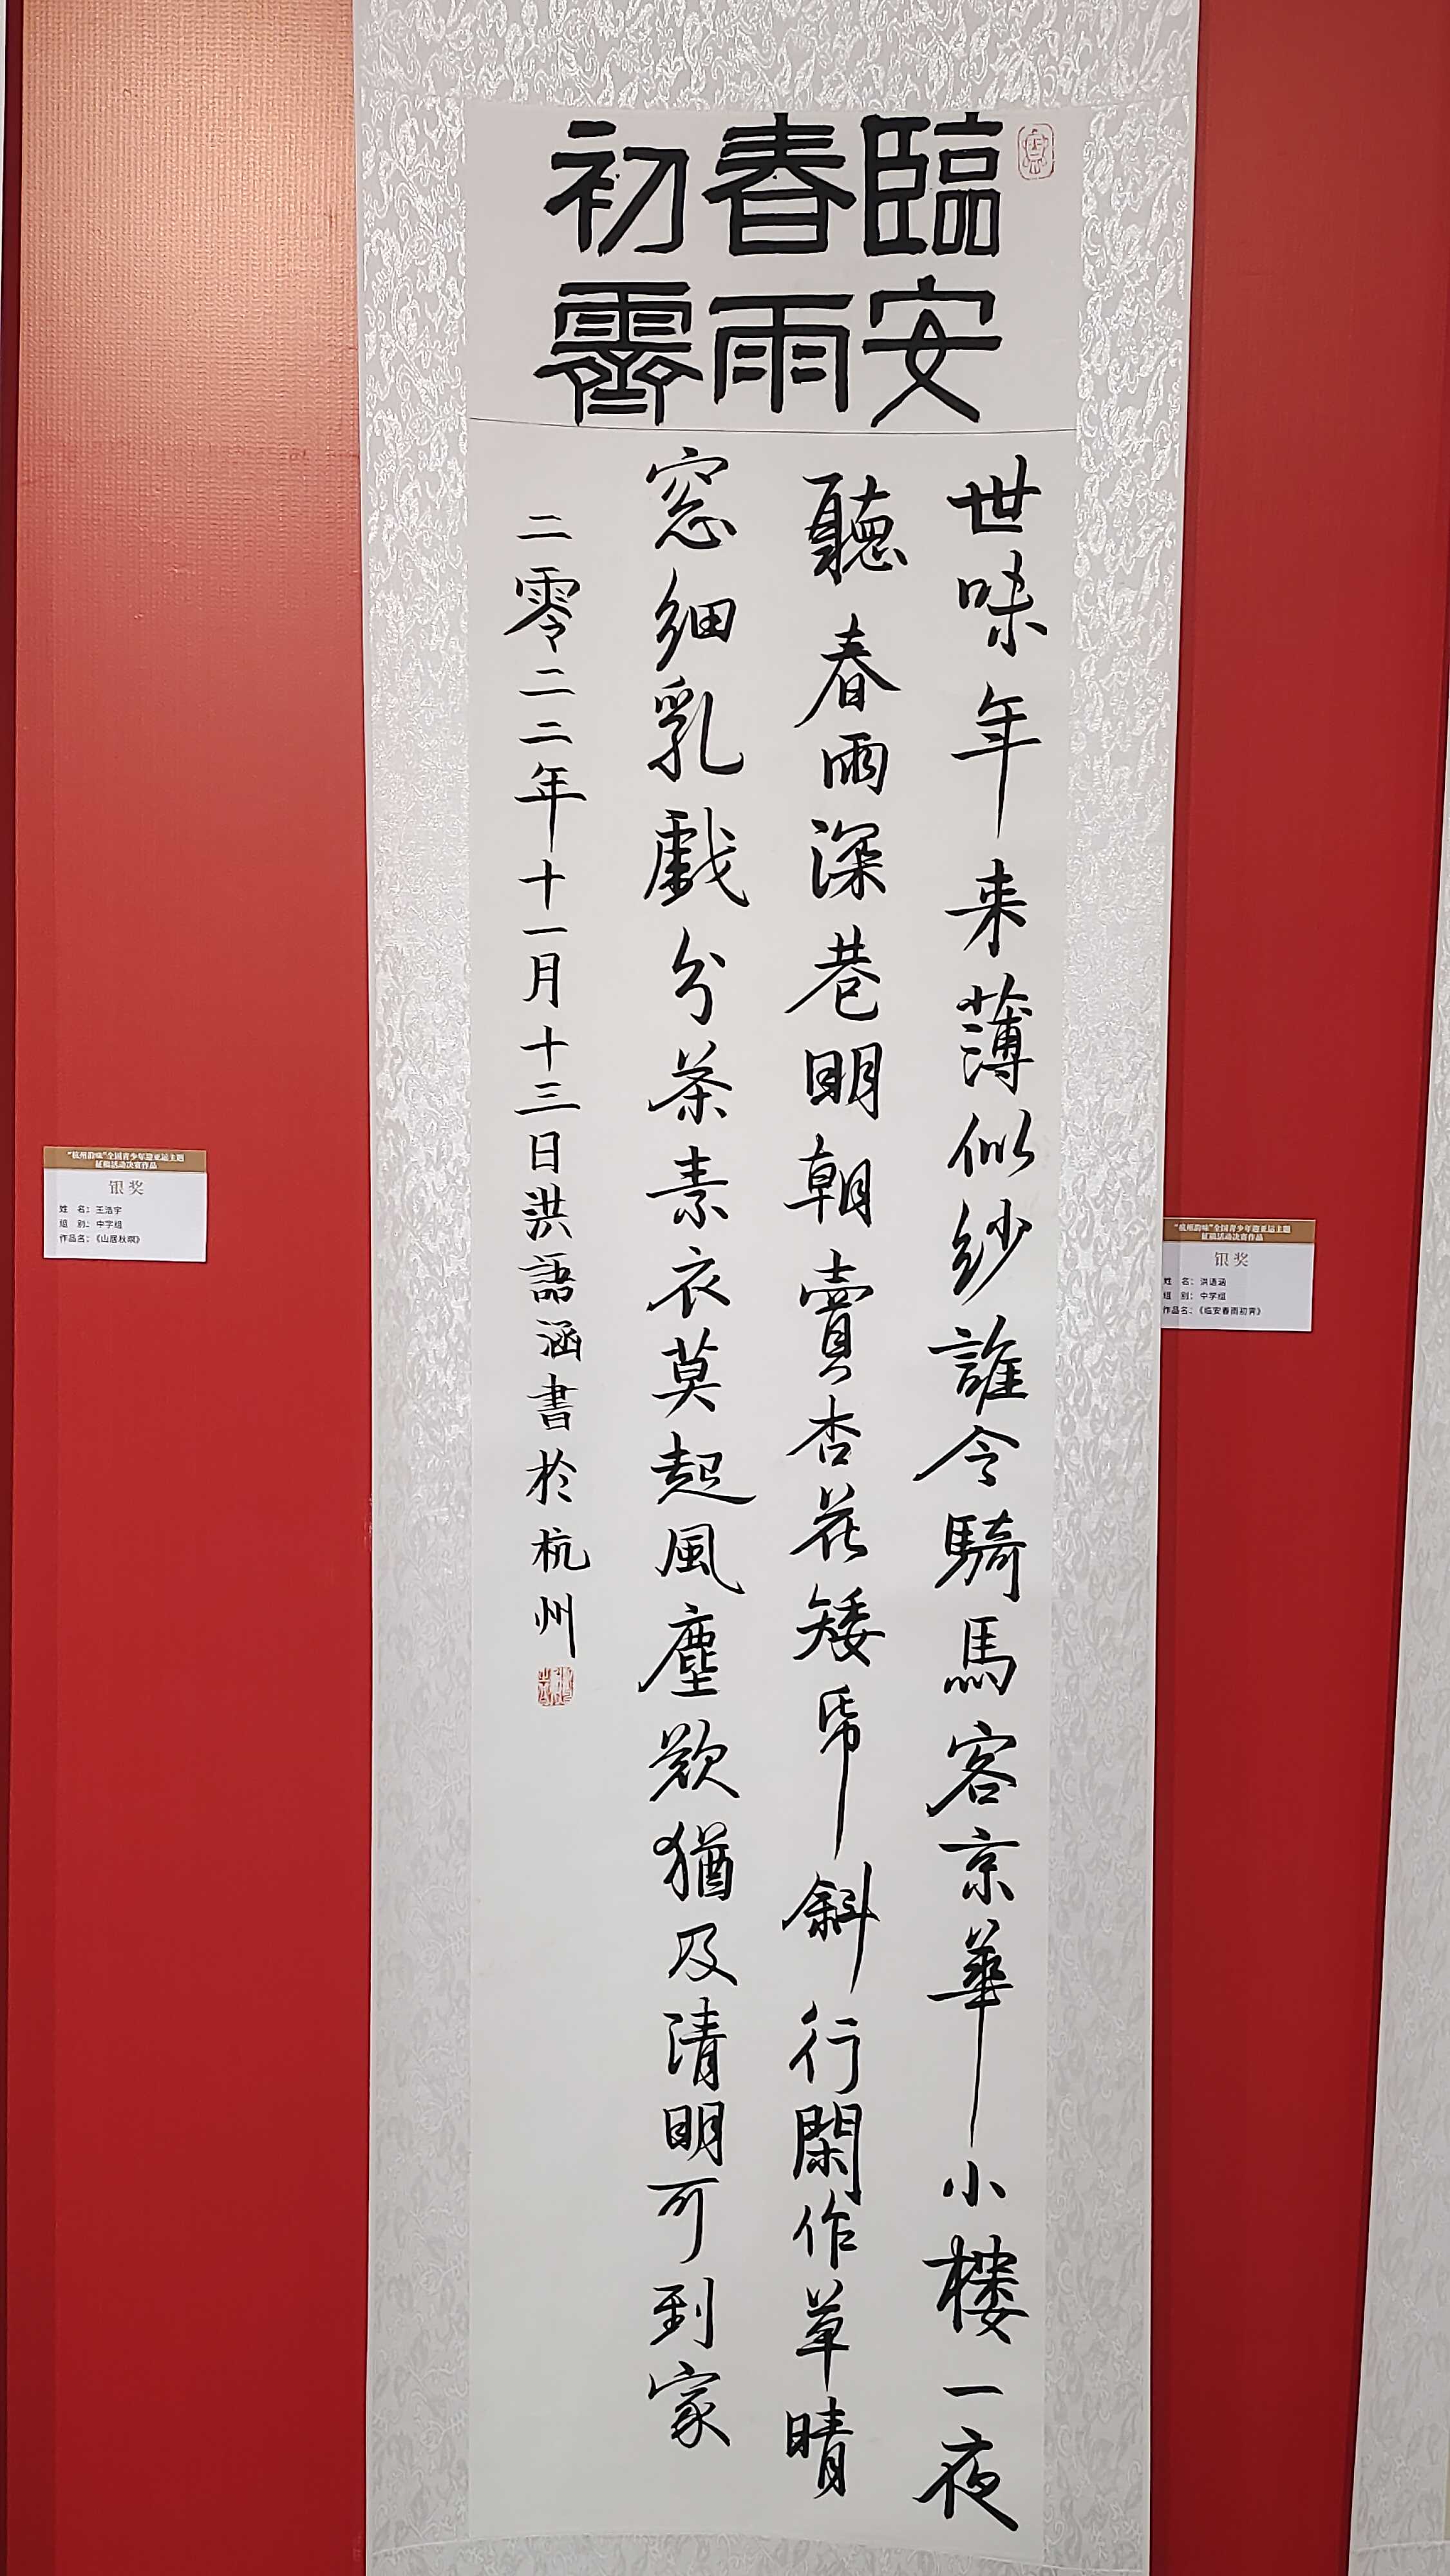 臨安
春雨
初霽
世味年来薄似紗誰令騎馬客京華小楼一夜
聽春雨深巷明朝賣杏花矮紙斜行閑作草晴
窓細乳戲分茶素衣莫起風塵歎猶及清明可到家
二零二二年十一月十三日洪語涵書於杭州
“杭州韵味”全国青少年迎亚运主题
征稿活动决赛作品
银奖
姓 名：王浩宇
组 别：中学组
作品名：《山居秋暝》
“杭州韵味”全国青少年迎亚运主题
征稿活动决赛作品
银奖
姓 名：洪语涵
组 别：中学组
作品名：《临安春雨初霁》